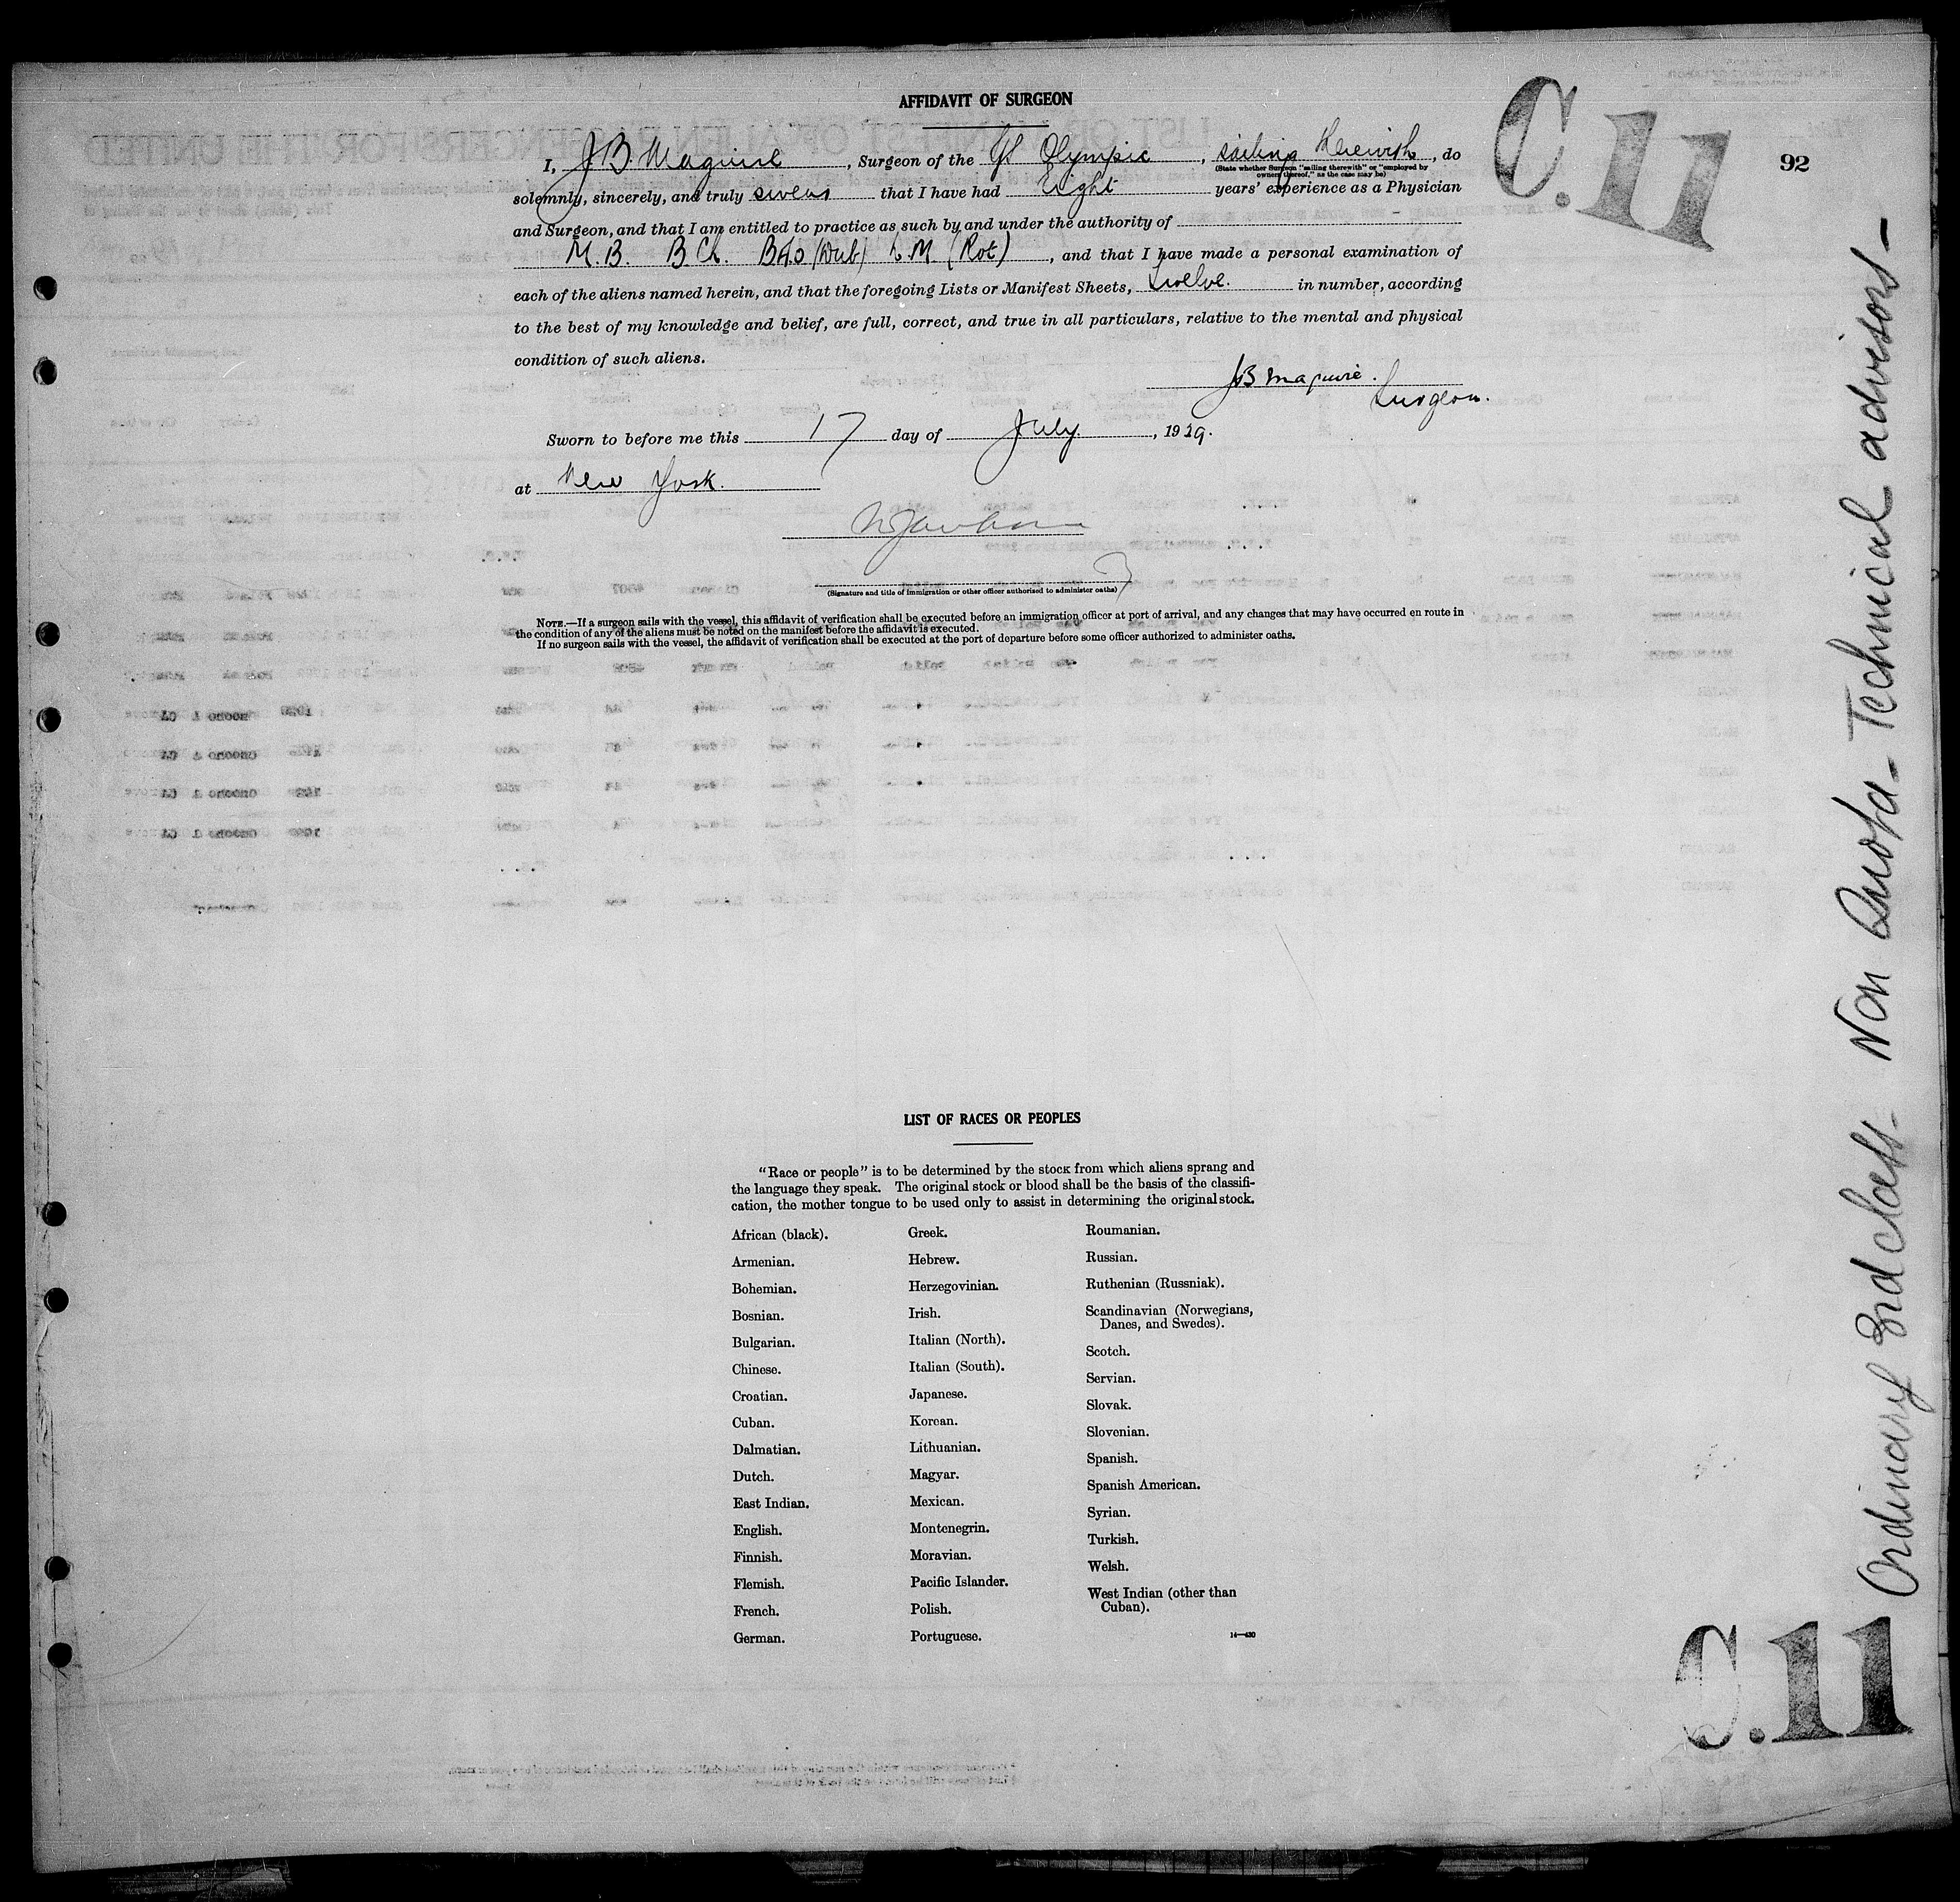 AFFIDAVIT OF SURGEON
C.11
92
I, J B Maguire, Surgeon of the SS Olympic, sailing therewith, do
(State whether Surgeon "sailing therewith" or "employed by
owners thereof," as the case may be)
solemnly, sincerely, and truly swear that I have had Eight years' experience as a Physician
and Surgeon, and that I am entitled to practice as such by and under the authority of
M.B. B.Ch. BAO (Dub) L.M. (Rot), and that I have made a personal examination of
each of the aliens named herein, and that the foregoing Lists or Manifest Sheets, twelve. in number, according
to the best of my knowledge and belief, are full, correct, and true in all particulars, relative to the mental and physical
condition of such aliens.
JB Maguire.
Surgeon.
Sworn to before me this 17 day of July, 1929.
at New York.
(Signature and title of immigration or other officer authorized to administer oaths)
NOTE.—If a surgeon sails with the vessel, this affidavit of verification shall be executed before an immigration officer at port of arrival, and any changes that may have occurred en route in
the condition of any of the aliens must be noted on the manifest before the affidavit is executed.
If no surgeon sails with the vessel, the affidavit of verification shall be executed at the port of departure before some officer authorized to administer oaths.
Ordinary 3rd class - Non Quota - Technical advisors -
LIST OF RACES OR PEOPLES
"Race or people" is to be determined by the stock from which aliens sprang and
the language they speak. The original stock or blood shall be the basis of the classifi-
cation, the mother tongue to be used only to assist in determining the original stock.
African (black).
Armenian.
Bohemian.
Bosnian.
Bulgarian.
Chinese.
Croatian.
Cuban.
Dalmatian.
Dutch.
East Indian.
English.
Finnish.
Flemish.
French.
German.
Greek.
Hebrew.
Herzegovinian.
Irish.
Italian (North).
Italian (South).
Japanese.
Korean.
Lithuanian.
Magyar.
Mexican.
Montenegrin.
Moravian.
Pacific Islander.
Polish.
Portuguese.
Roumanian.
Russian.
Ruthenian (Russniak).
Scandinavian (Norwegians,
Danes, and Swedes).
Scotch.
Servian.
Slovak.
Slovenian.
Spanish.
Spanish American.
Syrian.
Turkish.
Welsh.
West Indian (other than
Cuban).
14—430
C.11